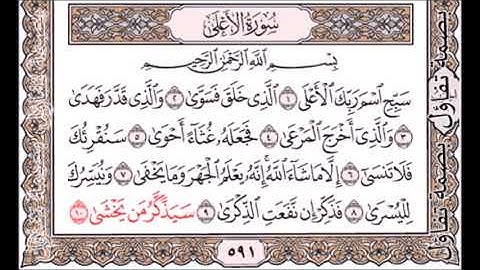 سُورَةُ الأَعْلَى
بِسْمِ اللَّهِ الرَّحْمَٰنِ الرَّحِيمِ
سَبِّحِ اسْمَ رَبِّكَ الْأَعْلَى ١ الَّذِي خَلَقَ فَسَوَّىٰ ٢ وَالَّذِي قَدَّرَ فَهَدَىٰ
٣ وَالَّذِي أَخْرَجَ الْمَرْعَىٰ ٤ فَجَعَلَهُ غُثَاءً أَحْوَىٰ ٥ سَنُقْرِئُكَ
فَلَا تَنسَىٰ ٦ إِلَّا مَا شَاءَ اللَّهُ إِنَّهُ يَعْلَمُ الْجَهْرَ وَمَا يَخْفَىٰ ٧ وَنُيَسِّرُكَ
لِلْيُسْرَىٰ ٨ فَذَكِّرْ إِن نَّفَعَتِ الذِّكْرَىٰ ٩ سَيَذَّكَّرُ مَن يَخْشَىٰ ١٠
٥٩١
بصمة تفاؤل
بصمة تفاؤل
بصمة تفاؤل